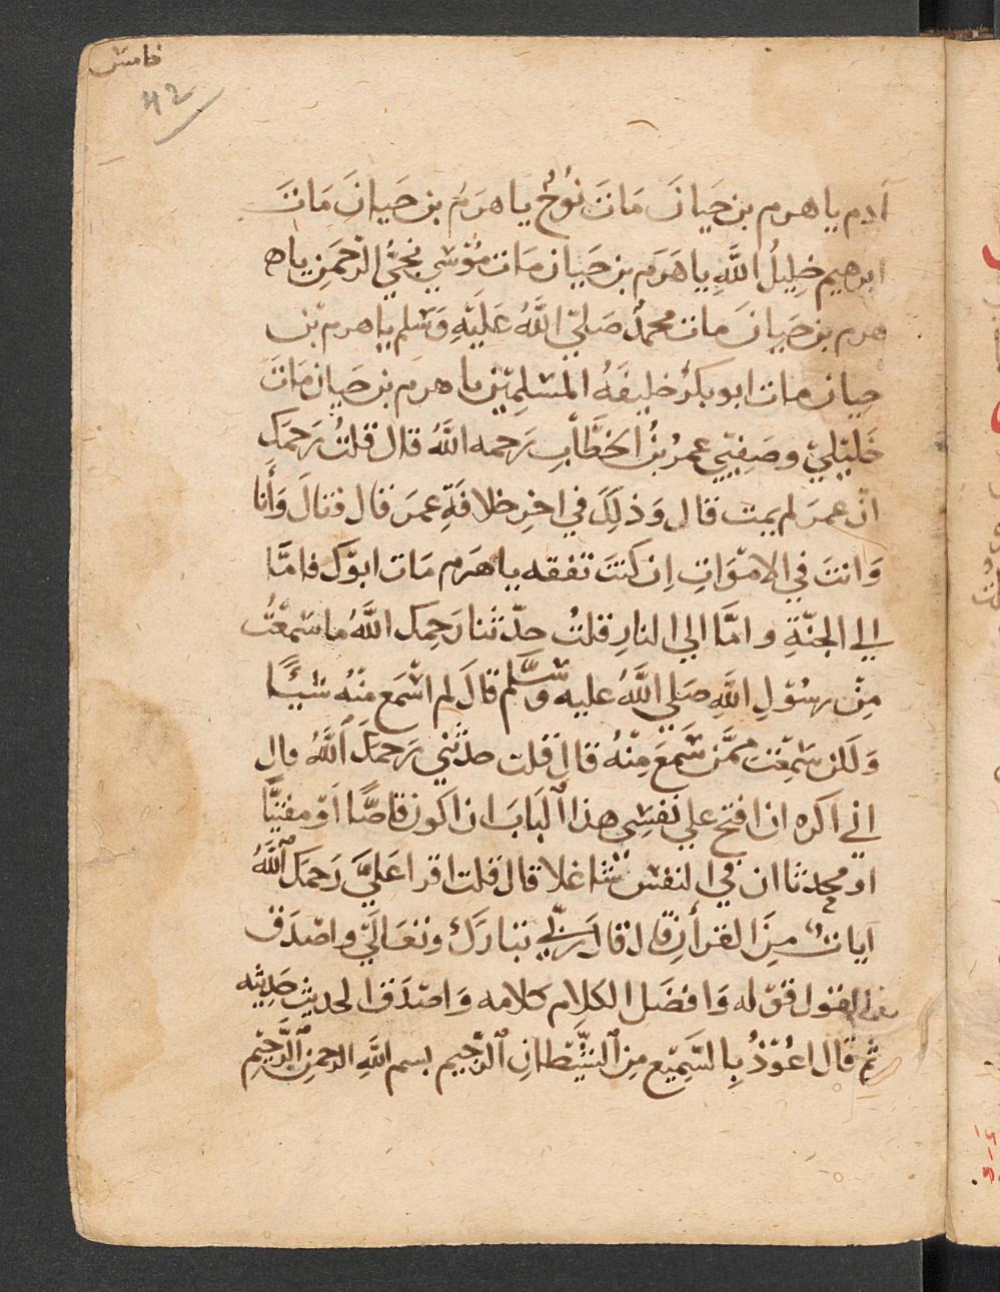 خامس
42
آدم يا هرم بن حيانَ مَاتَ نُوْحُ يا هَرَمُ بن حَيانَ مَاتَ
ابرهيم خليلُ اللَّهِ يا هَرَم بن حَيان مَات مُوْسَي نجيُّ الرَّحمَنِ ياه
هرم بن حَيانَ مات محمدٌ صَلَّي اللَّهُ عَلَيْهِ وَسَلم يا هرم بْن
حيان مات ابو بكرٍ خليفَهُ المسْلِمِيْن يا هرم بن حَيان مَاتَ
خَلِيْلِيْ وصَفِيّي عمرُ بْنُ الخطَّابِ رَحمه اللَّهُ قال قلتُ رَحمَكَ
انّ عمرَ لم يمت قال وَذلِكَ في اخرِ خلافَةِ عمَرَ قال فقالَ وَأَنا
وَانتَ في الامْوَاتِ اِن كنتَ تفقه يا هَرَم مَات ابوْكَ فامَّا
الي الجنّةِ وامَّا الي النارِ قلتُ حدّثنا رَحِمكَ اللَّهُ ما سَمعْتُ
مِنْ رسُوْلِ اللَّهِ صَلي اللَّهُ عليه وسَلَّم قالَ لم اسْمَع مِنْهُ شيْئًا
وَلَكن سَمِعْت ممَّن سَمعَ مِنْهُ قالَ قلت حدّثني رَحمَكَ اللَّهُ قال
اني اكره ان افتح علي نفسِي هذا البَابَ ان اكون قاصًّا اَوْ مفتيًّا
او محدثا ان في النفس شغلا قال قلت اقرا عَليَّ رَحمَكَ اللَّهُ
آيات مِنَ القرأنِ قال قال رَبّي تبارَكَ وتعَالَي واصْدَق
القول قوْله وَافضَل الكلام كلامه وَاصْدَق الحديثِ حَدِيْثه
ثم قال اعُوْذُ بِالسَّمِيْعِ مِنَ الشَّيْطانِ الرَّجيم بسم اللَّهِ الرحمن الرَّحِيْم